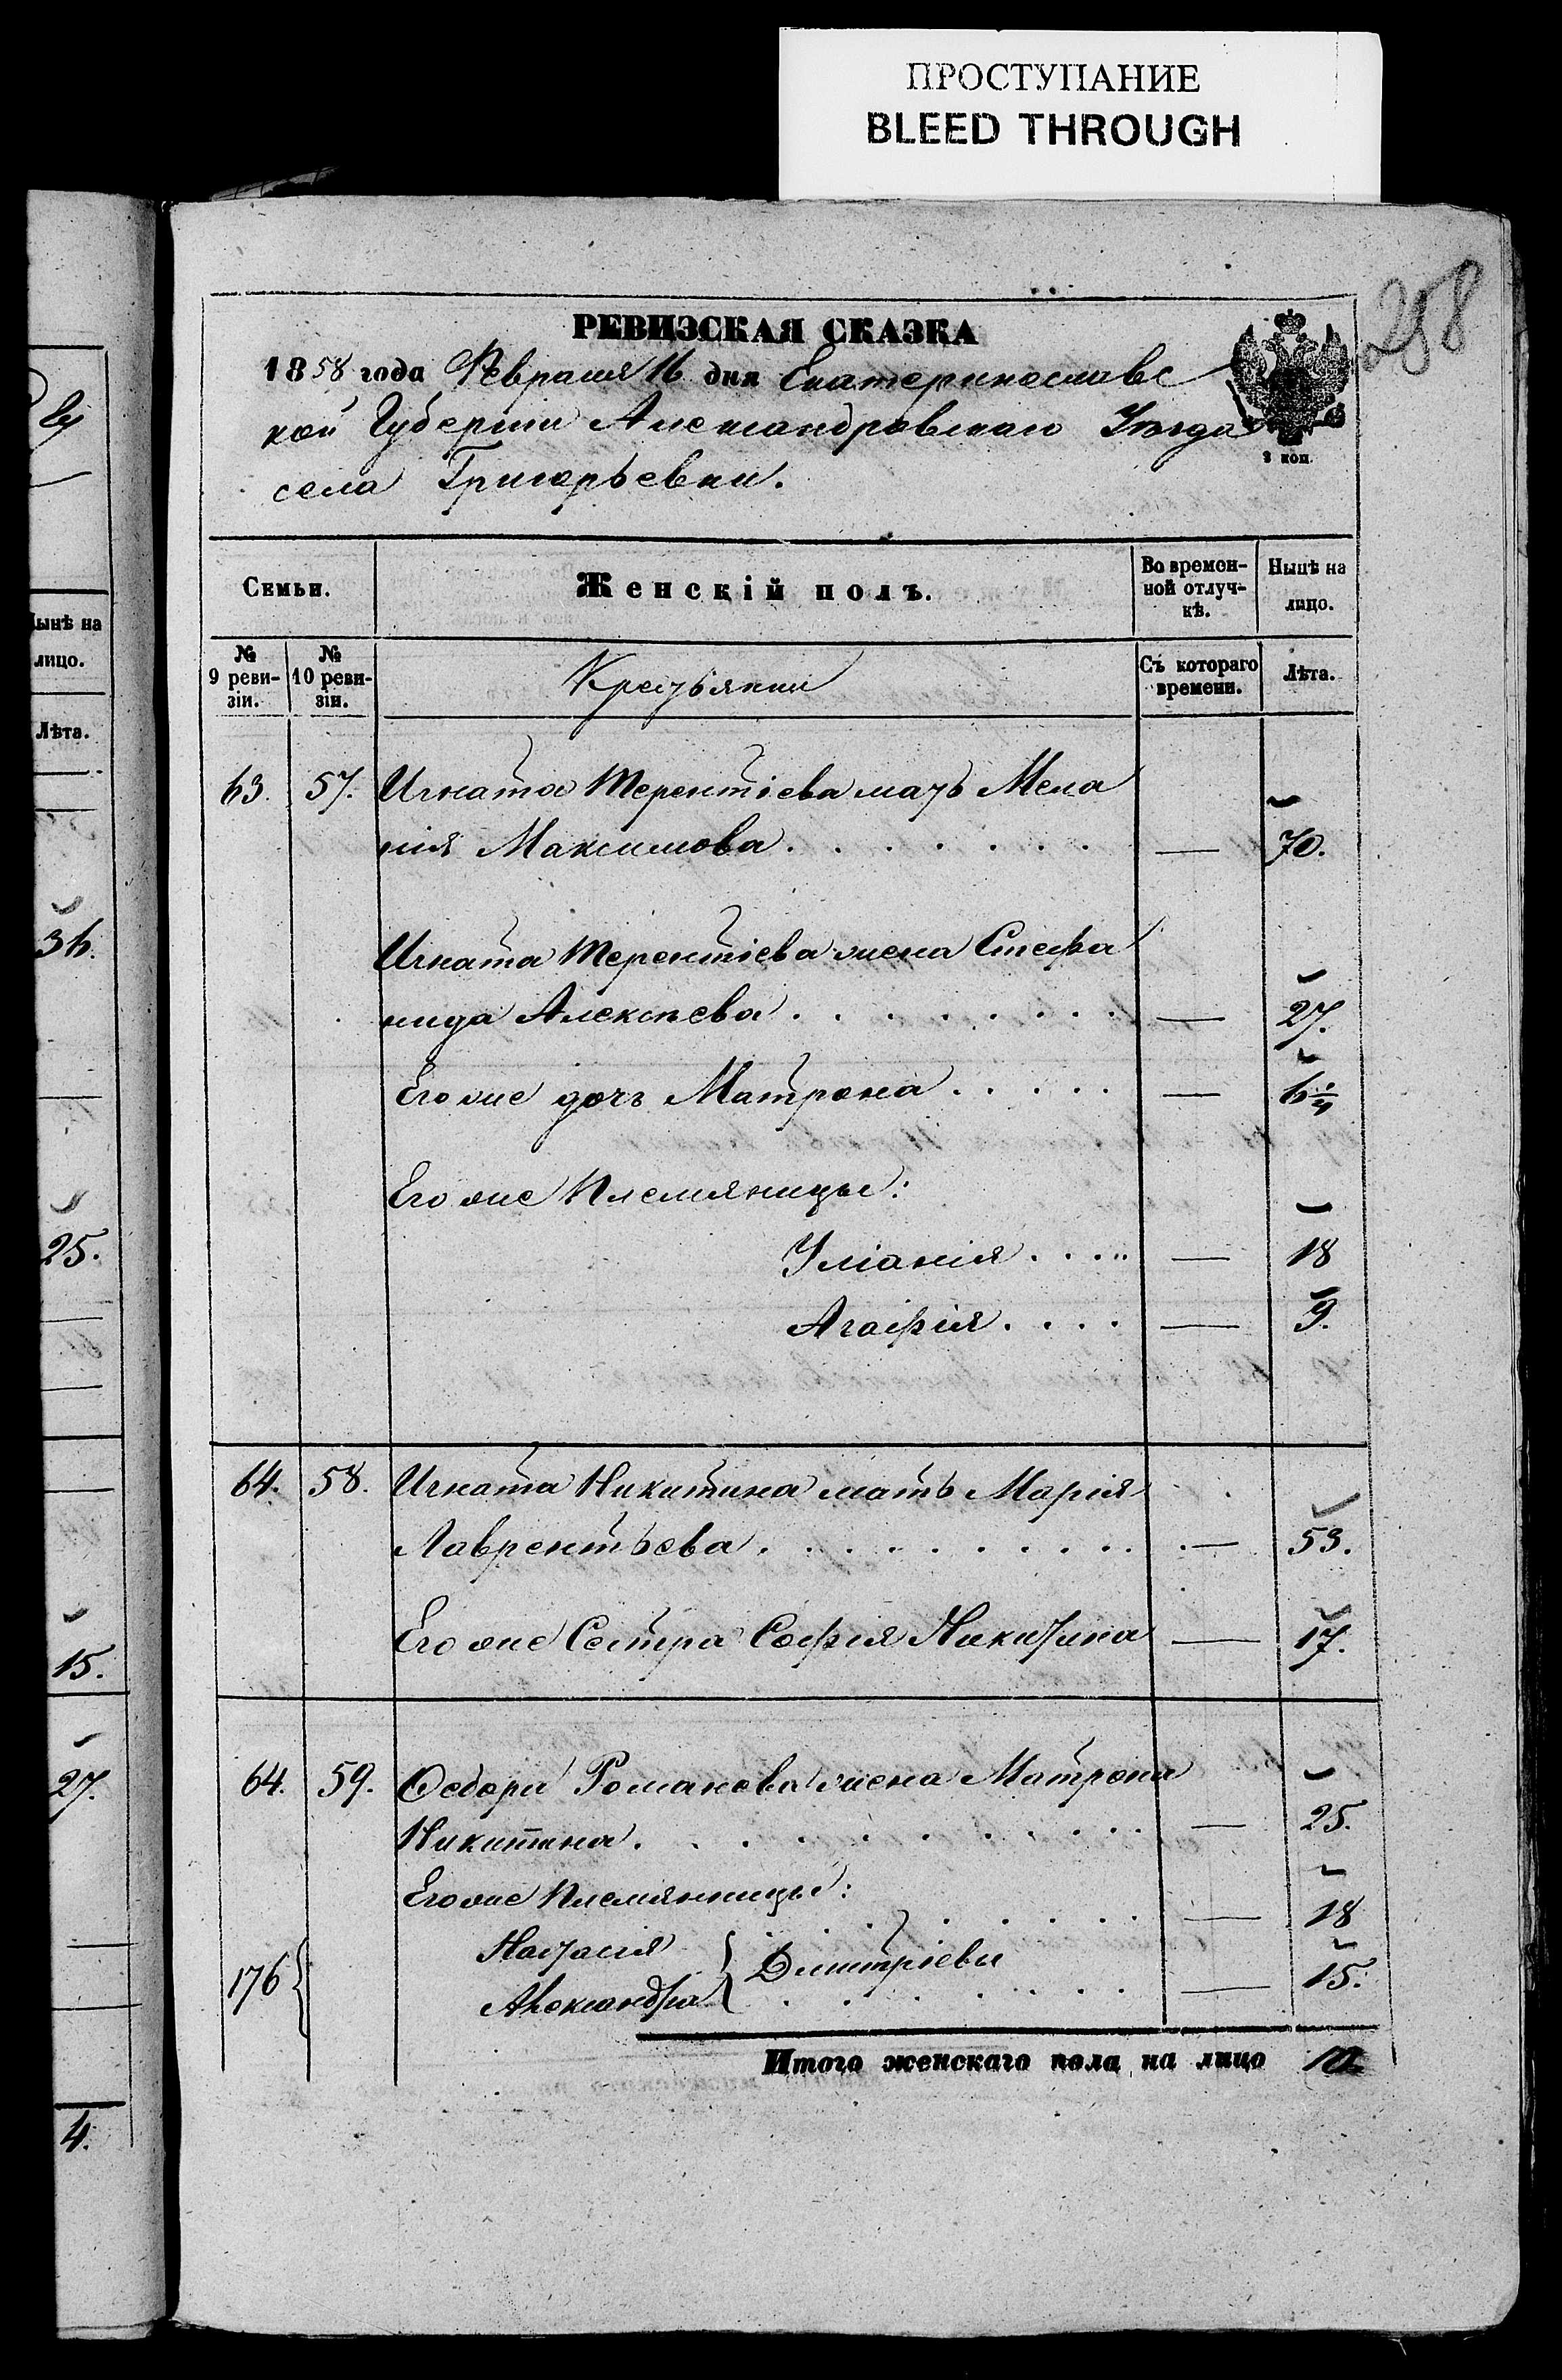 ПРОСТУПАНИЕ
BLEED THROUGH
258
РЕВИЗСКАЯ СКАЗКА
1858 года Февраля 16 дня Екатеринославс
кой Губерніи Александровскаго Уѣзда
3 коп.
села Григорьевки.
Семьи.
Женскій полъ.
Во времен-
ной отлуч-
кѣ.
Нынѣ на
лицо.
№
9 реви-
зіи.
№
10 реви-
зіи.
Крестьянки
Съ котораго
времени.
Лѣта.
63. 57. Игната Терентіева мать Мела
нія Максимова . . . . . . . — 70.
Игната Терентіева жена Стефа
нида Алексѣева . . . . . . . . — 27.
Его же дочь Матрона . . . . . — 6 1/4
Его же Племяницы:
Уліанія . . . . — 18
Агафія . . . . — 9.
64. 58. Игната Никитина мать Марія
Лаврентьева . . . . . . . . . . — 53.
Его же Сестра Софія Никитина — 17.
64. 59. Ѳедора Романова жена Матрона
Никитина . . . . . . . . . . — 25.
Его же Племянницы:
Настасія . . . . . — 18
176 { } Димитріевы
Александра . . . . . . — 15.
Итого женскаго пола на лицо 10
Нынѣ на
лицо.
Лѣта.
36.
25.
15.
27.
4.